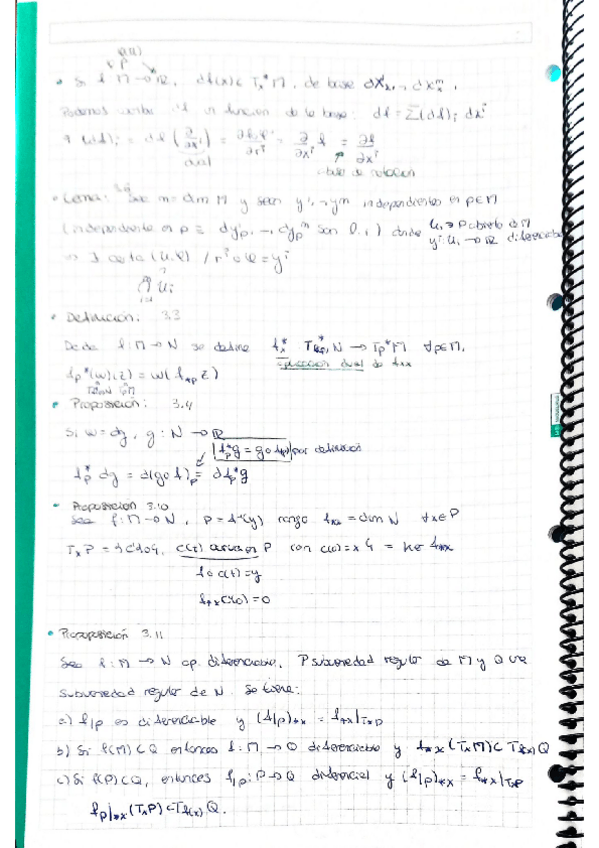 • Si f: M → ℝ, df(x) ∈ Tₓ*M, de base dx¹ₓ, ..., dxᵐₓ.
Podemos escribir df en función de la base: df = Σ (df)ᵢ dxⁱ
y (df)ᵢ = df(∂/∂xⁱ) = = ∂/∂xⁱ f = ∂f/∂xⁱ
dual
abuso de notación
• Lema: 3.9 Sea m = dim M y sean y¹, ..., yᵐ independientes en p∈M
(independientes en p ≡ dy¹ₚ, ..., dyᵐₚ son l.i.) donde Uᵢ ∋ p abierto de M
yⁱ: Uᵢ → ℝ diferenciable
⇒ ∃ carta (U, φ) / rⁱ∘φ = yⁱ
∩ Uᵢ
• Definición: 3.3
Dada f: M → N se define fₓ* T*f(p) N → Tₚ*M ∀p∈M,
aplicación dual de f*x
fₚ*(w)(z) = w(f*ₚ z)
• Proposición: 3.4
Si w = dg, g: N → ℝ
f*ₚ g = g∘f por definición
fₚ* dg = d(g∘f)ₚ = d fₚ* g
• Proposición 3.10
Sea f: M → N, P = f⁻¹(y) rango f*x = dim N ∀x∈P
TₓP = { c'(0), c(t) curva en P con c(0) = x } = Ker f*x
f∘c(t) = y
f*x c'(0) = 0
• Proposición 3.11
Sea f: M → N ap. diferenciable, P subvariedad regular de M y Q una
subvariedad regular de N. Se tiene:
a) f|P es diferenciable y (f|P)*x = f*x|TₓP
b) Si f(M) ⊂ Q entonces f: M → Q diferenciable y f*x (TₓM) ⊂ Tf(x) Q
c) Si f(P) ⊂ Q, entonces f|P: P → Q diferencial y (f|P)*x = f*x|TₓP
f|P|*x (TₓP) ⊂ Tf(x) Q.